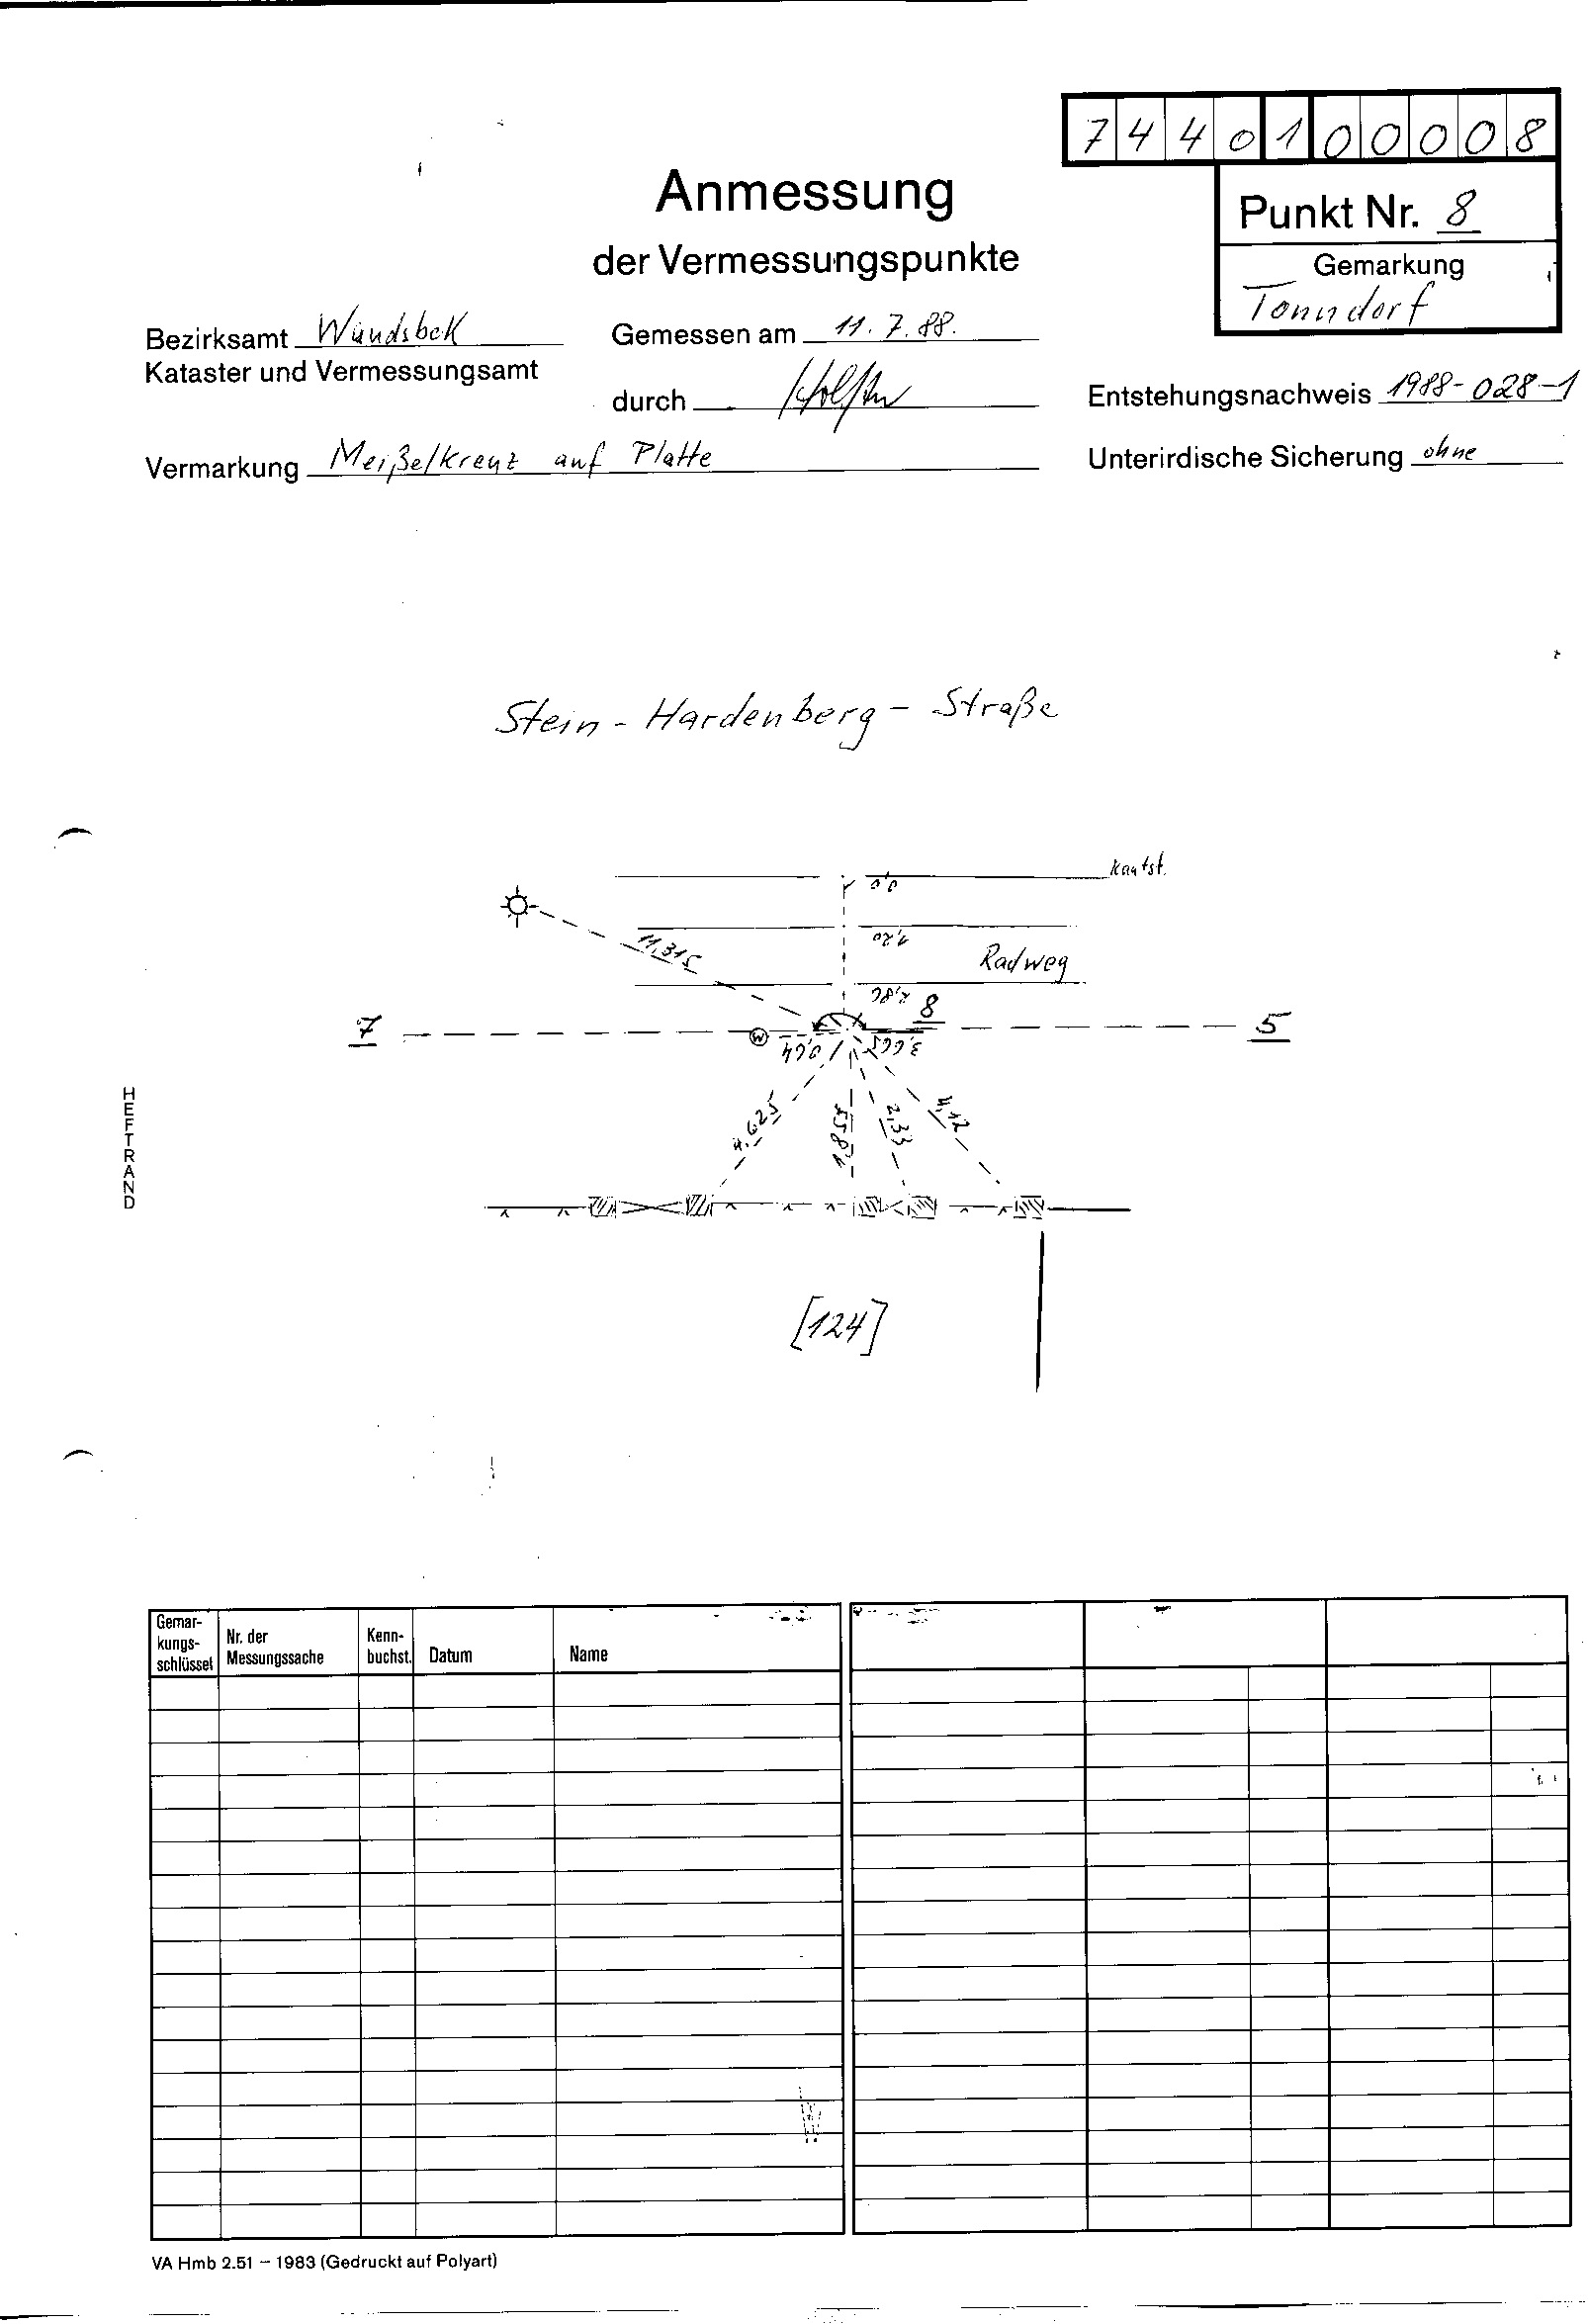 7 4 4 0 1 0 0 0 0 8
Anmessung
der Vermessungspunkte
Punkt Nr. 8
Gemarkung
Tonndorf
Bezirksamt Wandsbek
Kataster und Vermessungsamt
Gemessen am 11. 7. 88.
durch
Entstehungsnachweis 1988-028-1
Vermarkung Meißelkreuz auf Platte
Unterirdische Sicherung ohne
Stein - Hardenberg - Straße
Kantst.
0,0
11,315
1,20
Radweg
8
7
5
W
0,64
3,665
4,625
1,855
2,33
4,12
HEFTRAND
[124]
Gemar-
kungs-
schlüssel
Nr. der
Messungssache
Kenn-
buchst.
Datum
Name
VA Hmb 2.51 – 1983 (Gedruckt auf Polyart)